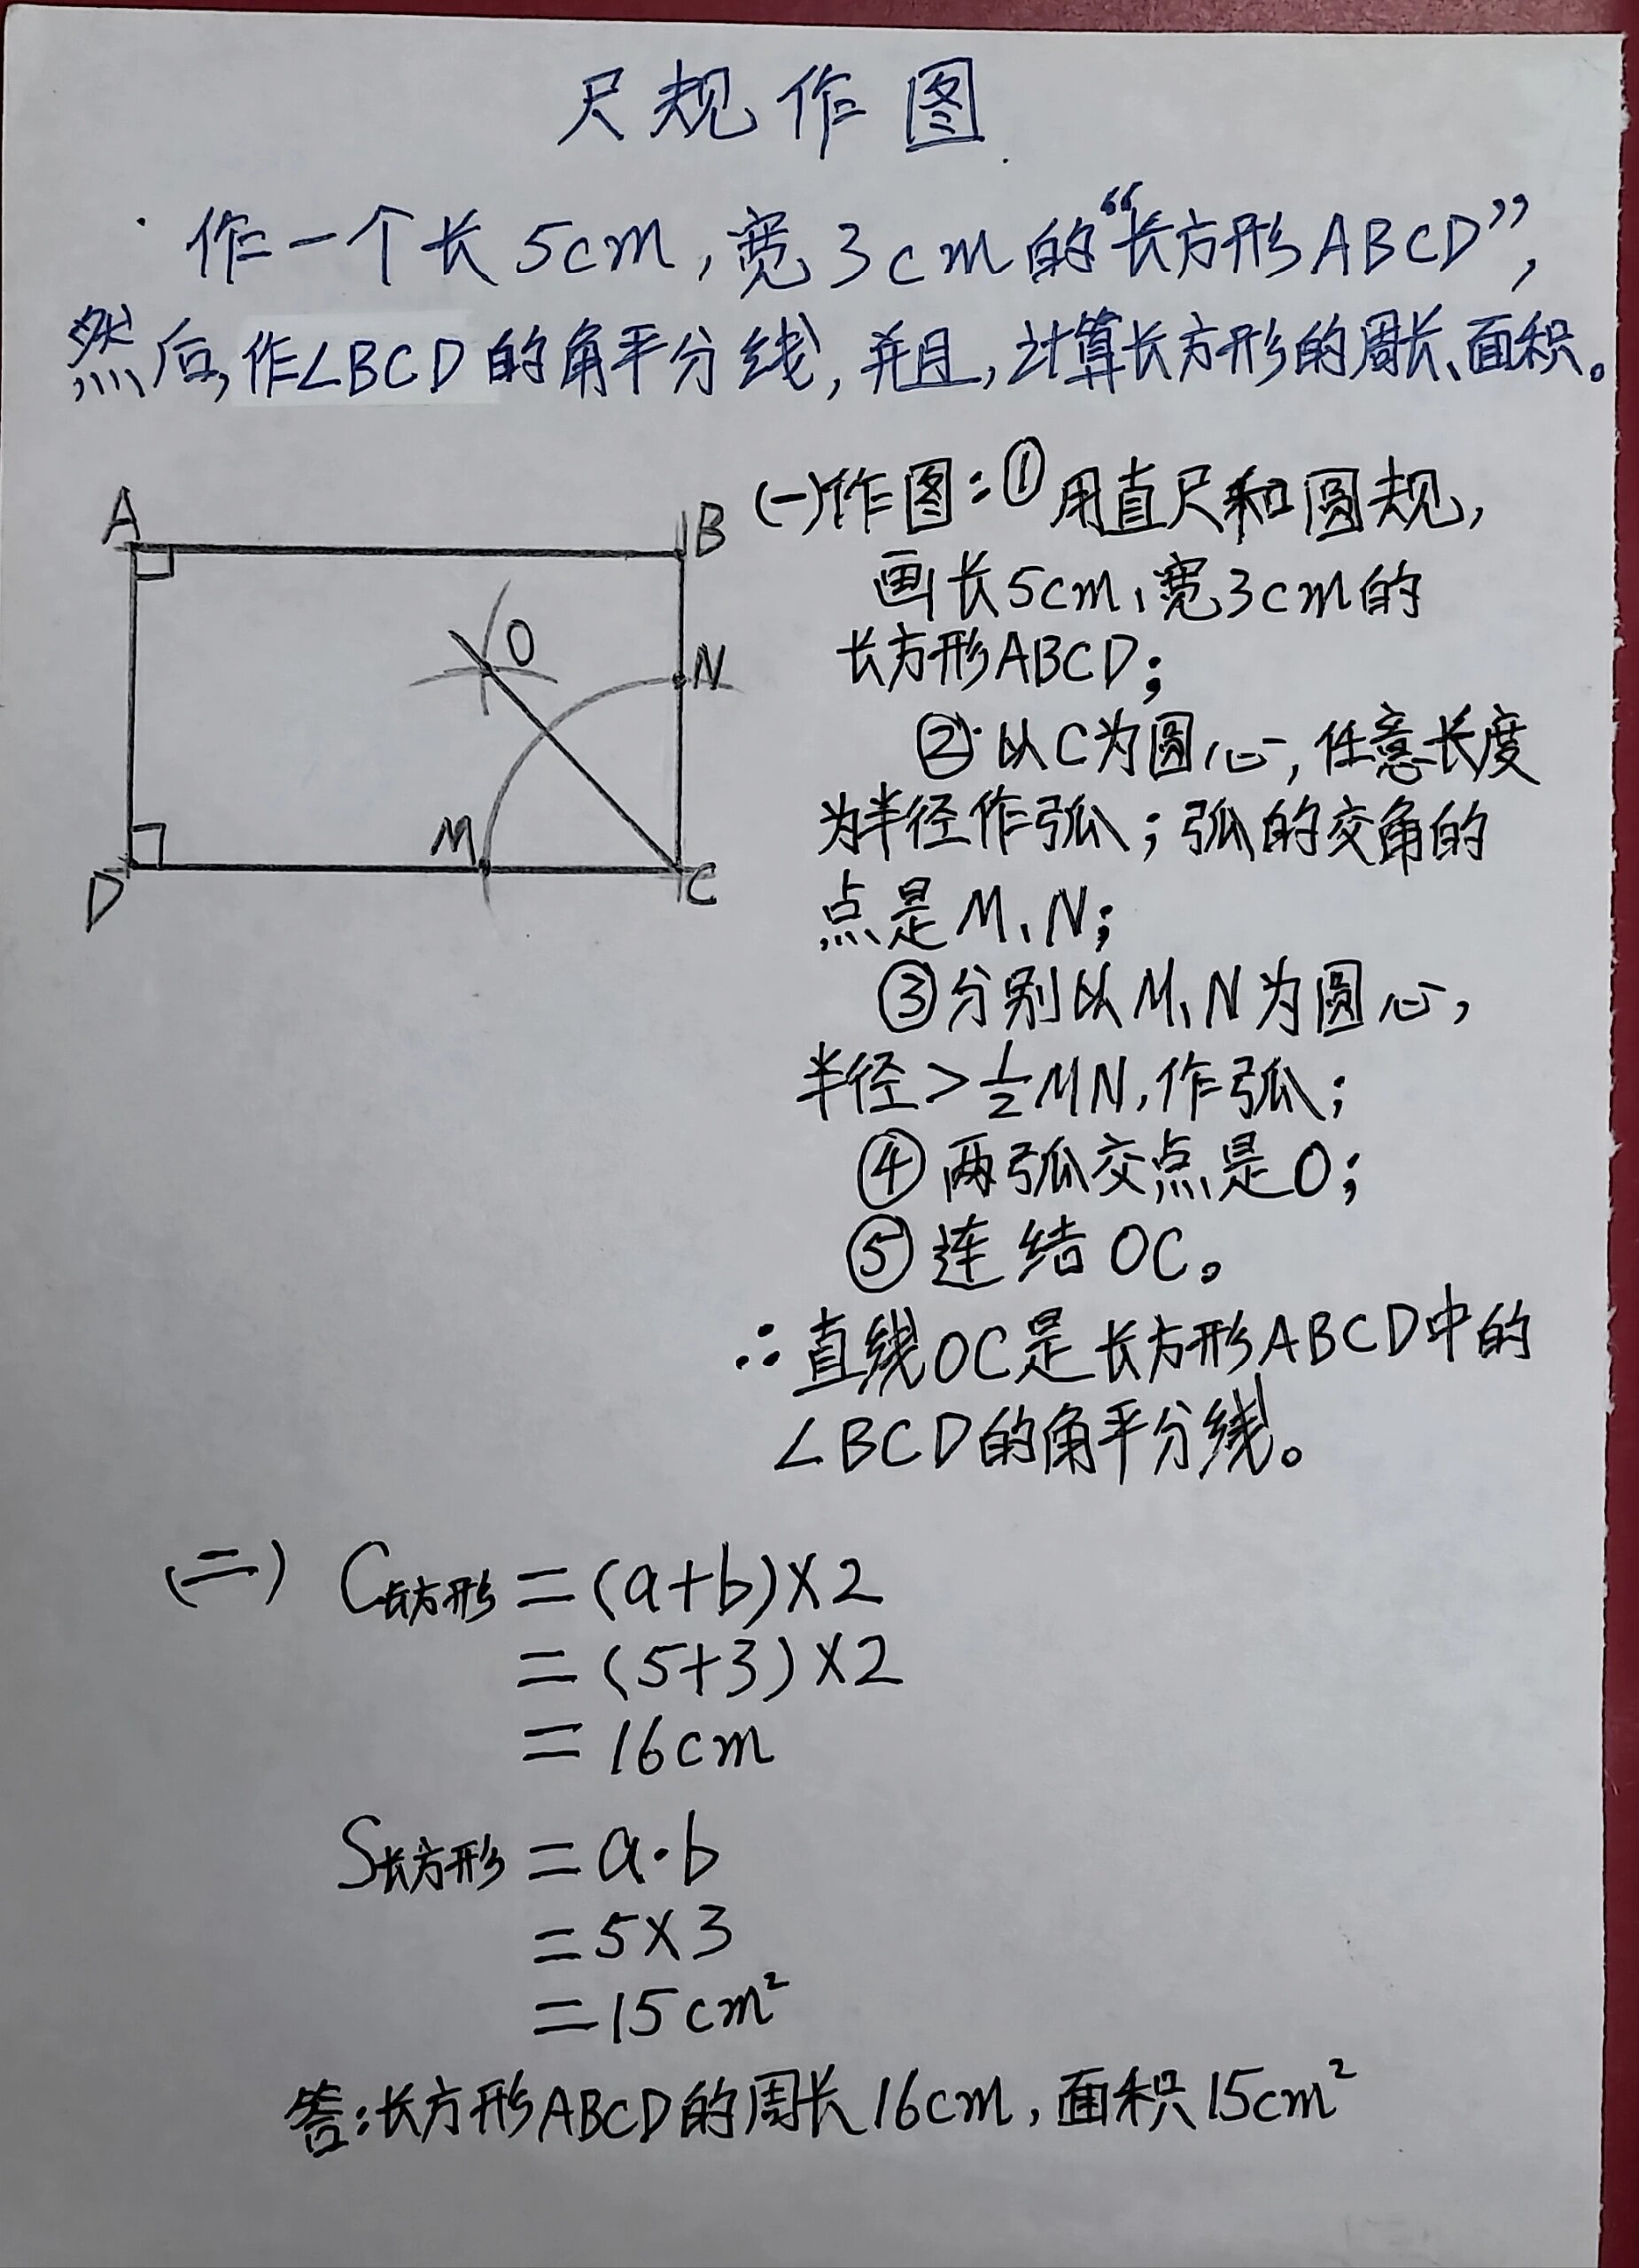 尺规作图
作一个长5cm,宽3cm的“长方形ABCD”,
然后,作∠BCD的角平分线,并且,计算长方形的周长、面积。
A
B
O
N
M
D
C
(一)作图:①用直尺和圆规,
画长5cm、宽3cm的
长方形ABCD;
②以C为圆心,任意长度
为半径作弧;弧的交角的
点是M、N;
③分别以M、N为圆心,
半径>1/2MN,作弧;
④两弧交点是O;
⑤连结OC。
∴直线OC是长方形ABCD中的
∠BCD的角平分线。
(二) C长方形=(a+b)×2
=(5+3)×2
=16cm
S长方形=a·b
=5×3
=15cm²
答:长方形ABCD的周长16cm,面积15cm²